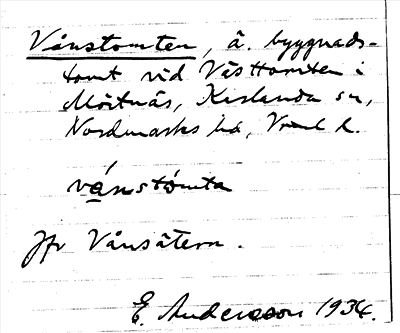 Vånstomten, ä. byggnads-
tomt vid Västtomten i
Möitnäs, Karlanda sn,
Nordmarks hd, Vrml l.
vånstómta
Jfr Vånsätern.
E. Andersson 1934.